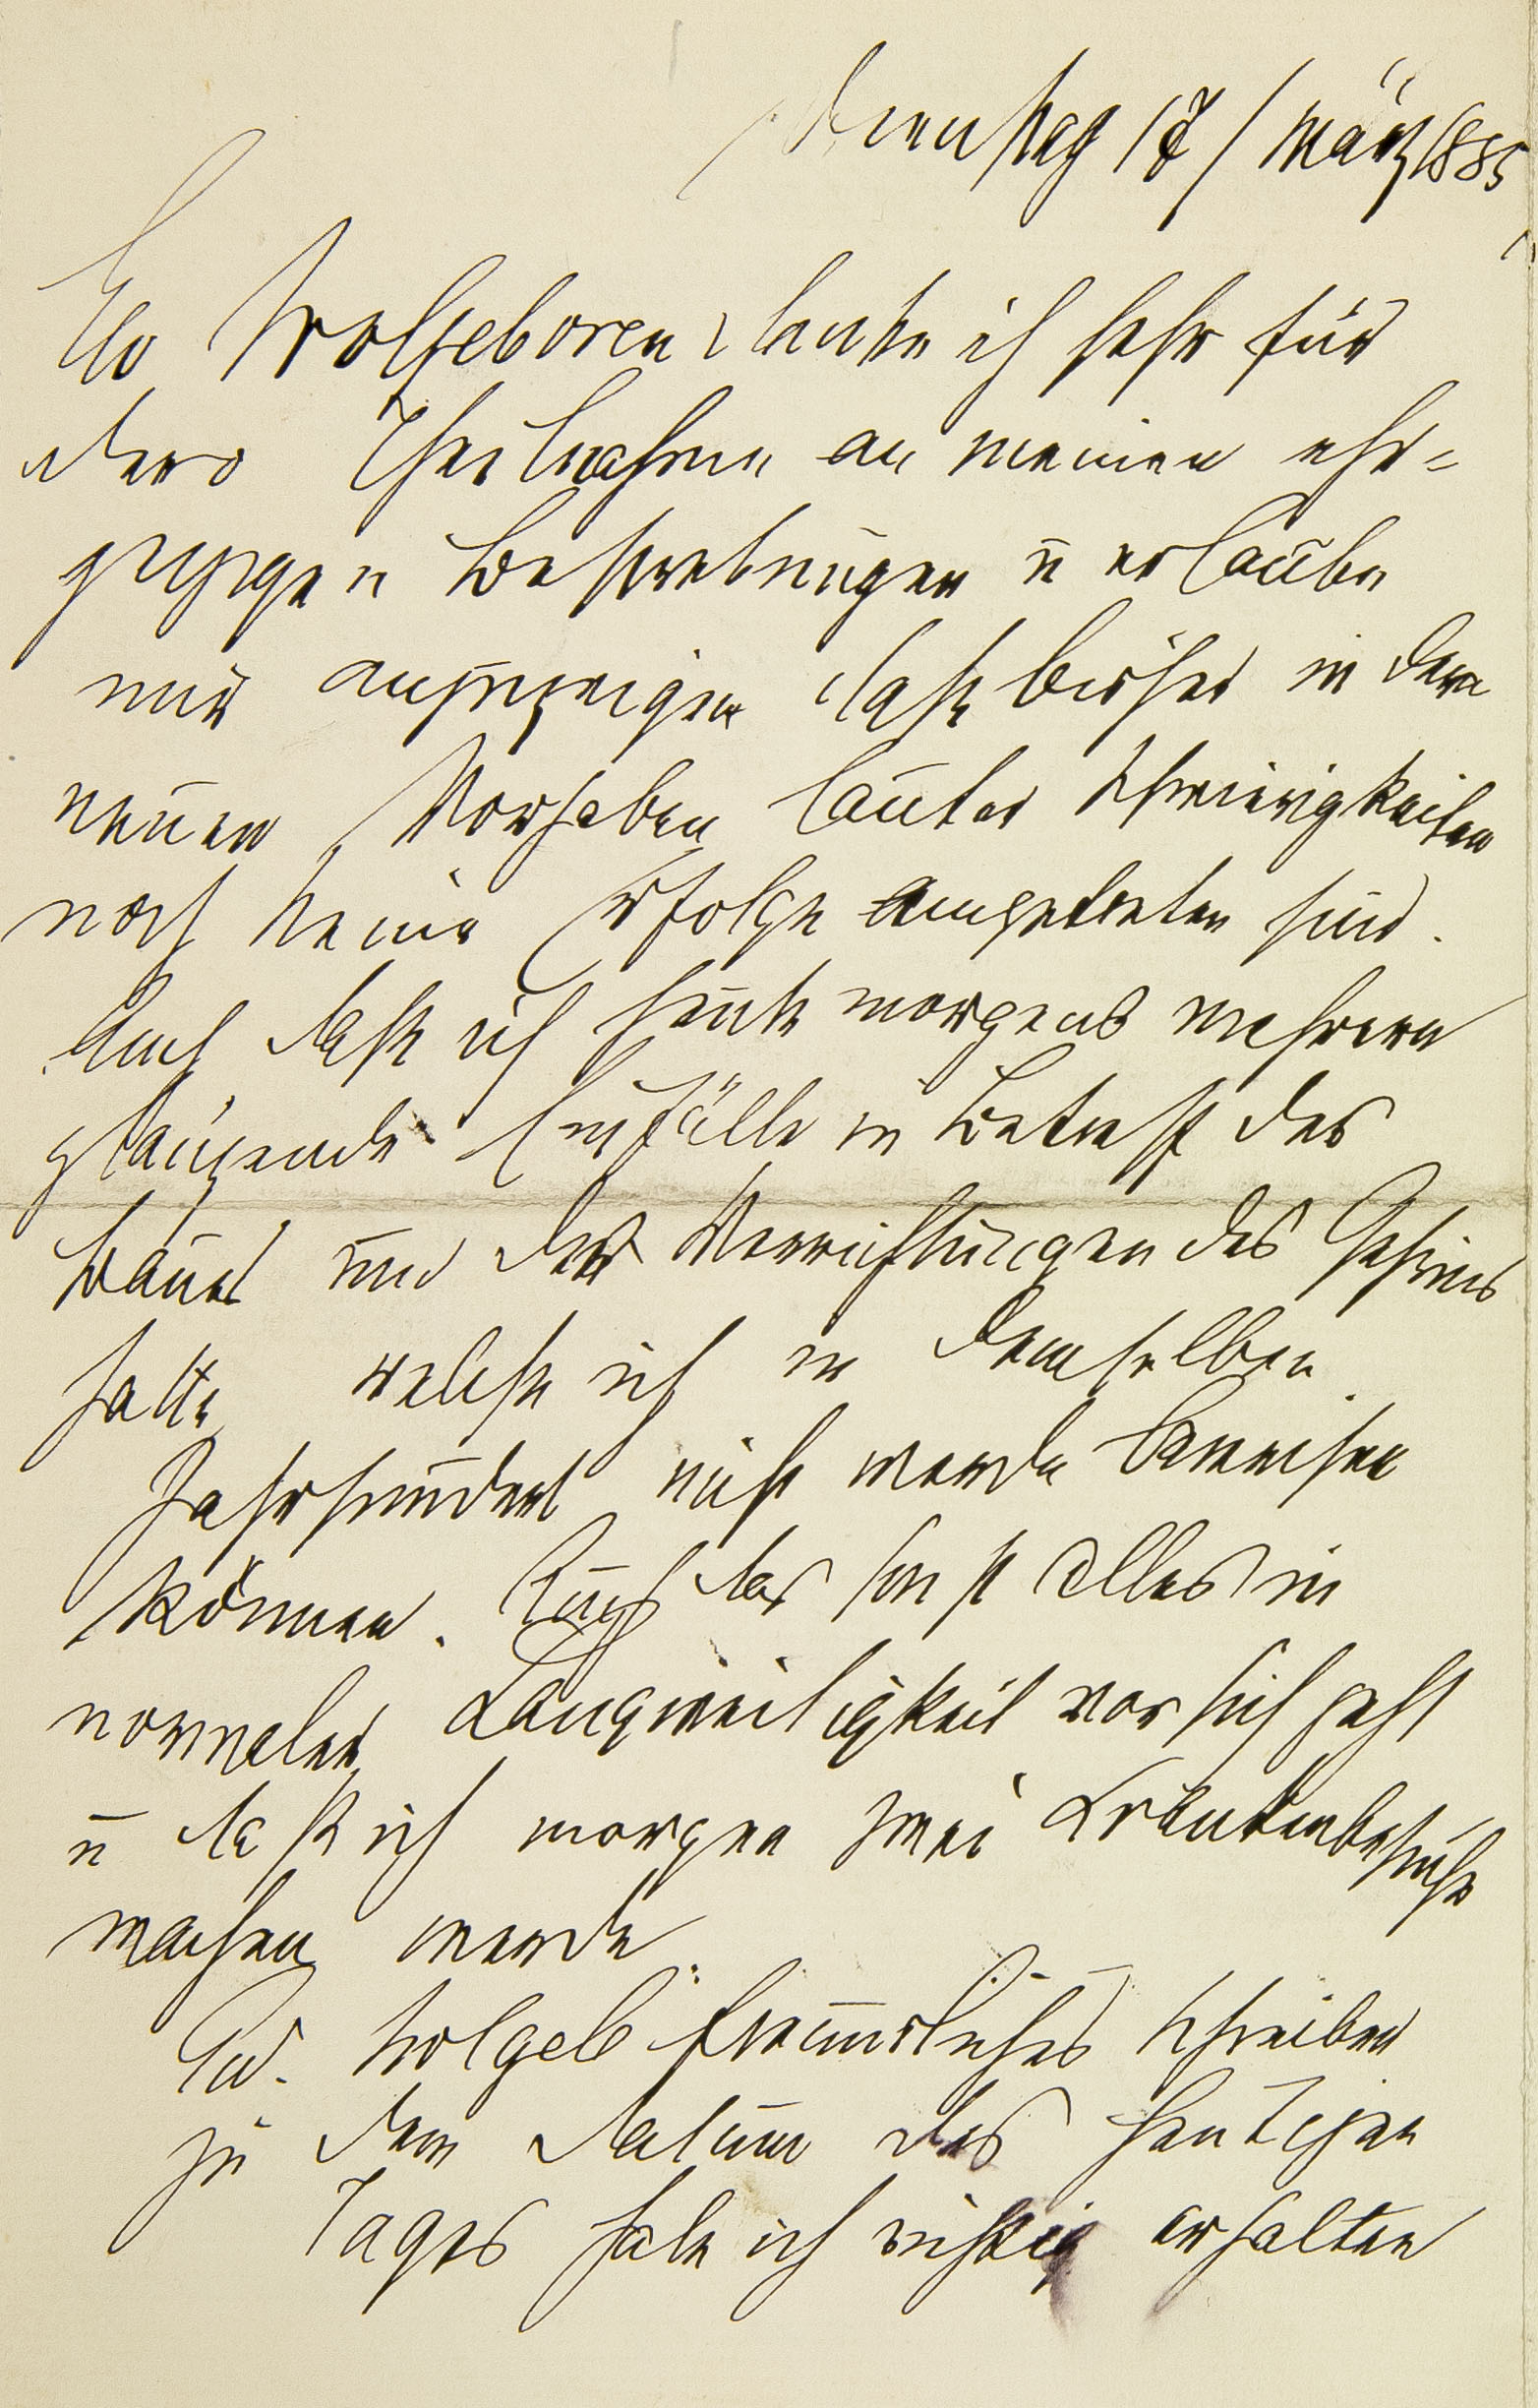 Dienstag 17/ März 1885
Ew Wolgeboren danke ich sehr für
dero Theilnahme an meinen ehr=
geizigen Bestrebungen u erlaube
mir anzuzeigen daß bisher in dem
neuen Vorhaben lauter Schwierigkeiten
noch keine Erfolge eingetreten sind.
Auch daß ich heute morgens mehrere
glänzende Einfälle in Betreff des
Baues und der Verrichtungen des Gehirns
hatte welche ich in demselben
Jahrhundert nicht werde beweisen
können. Auch daß sonst alles in
normaler Langweiligkeit vor sich geht
u daß ich morgen zwei Krankenbesuche
machen werde.
Ew. Wolgeb freundliches Schreiben
zu dem Datum des heutigen
Tages habe ich richtig erhalten